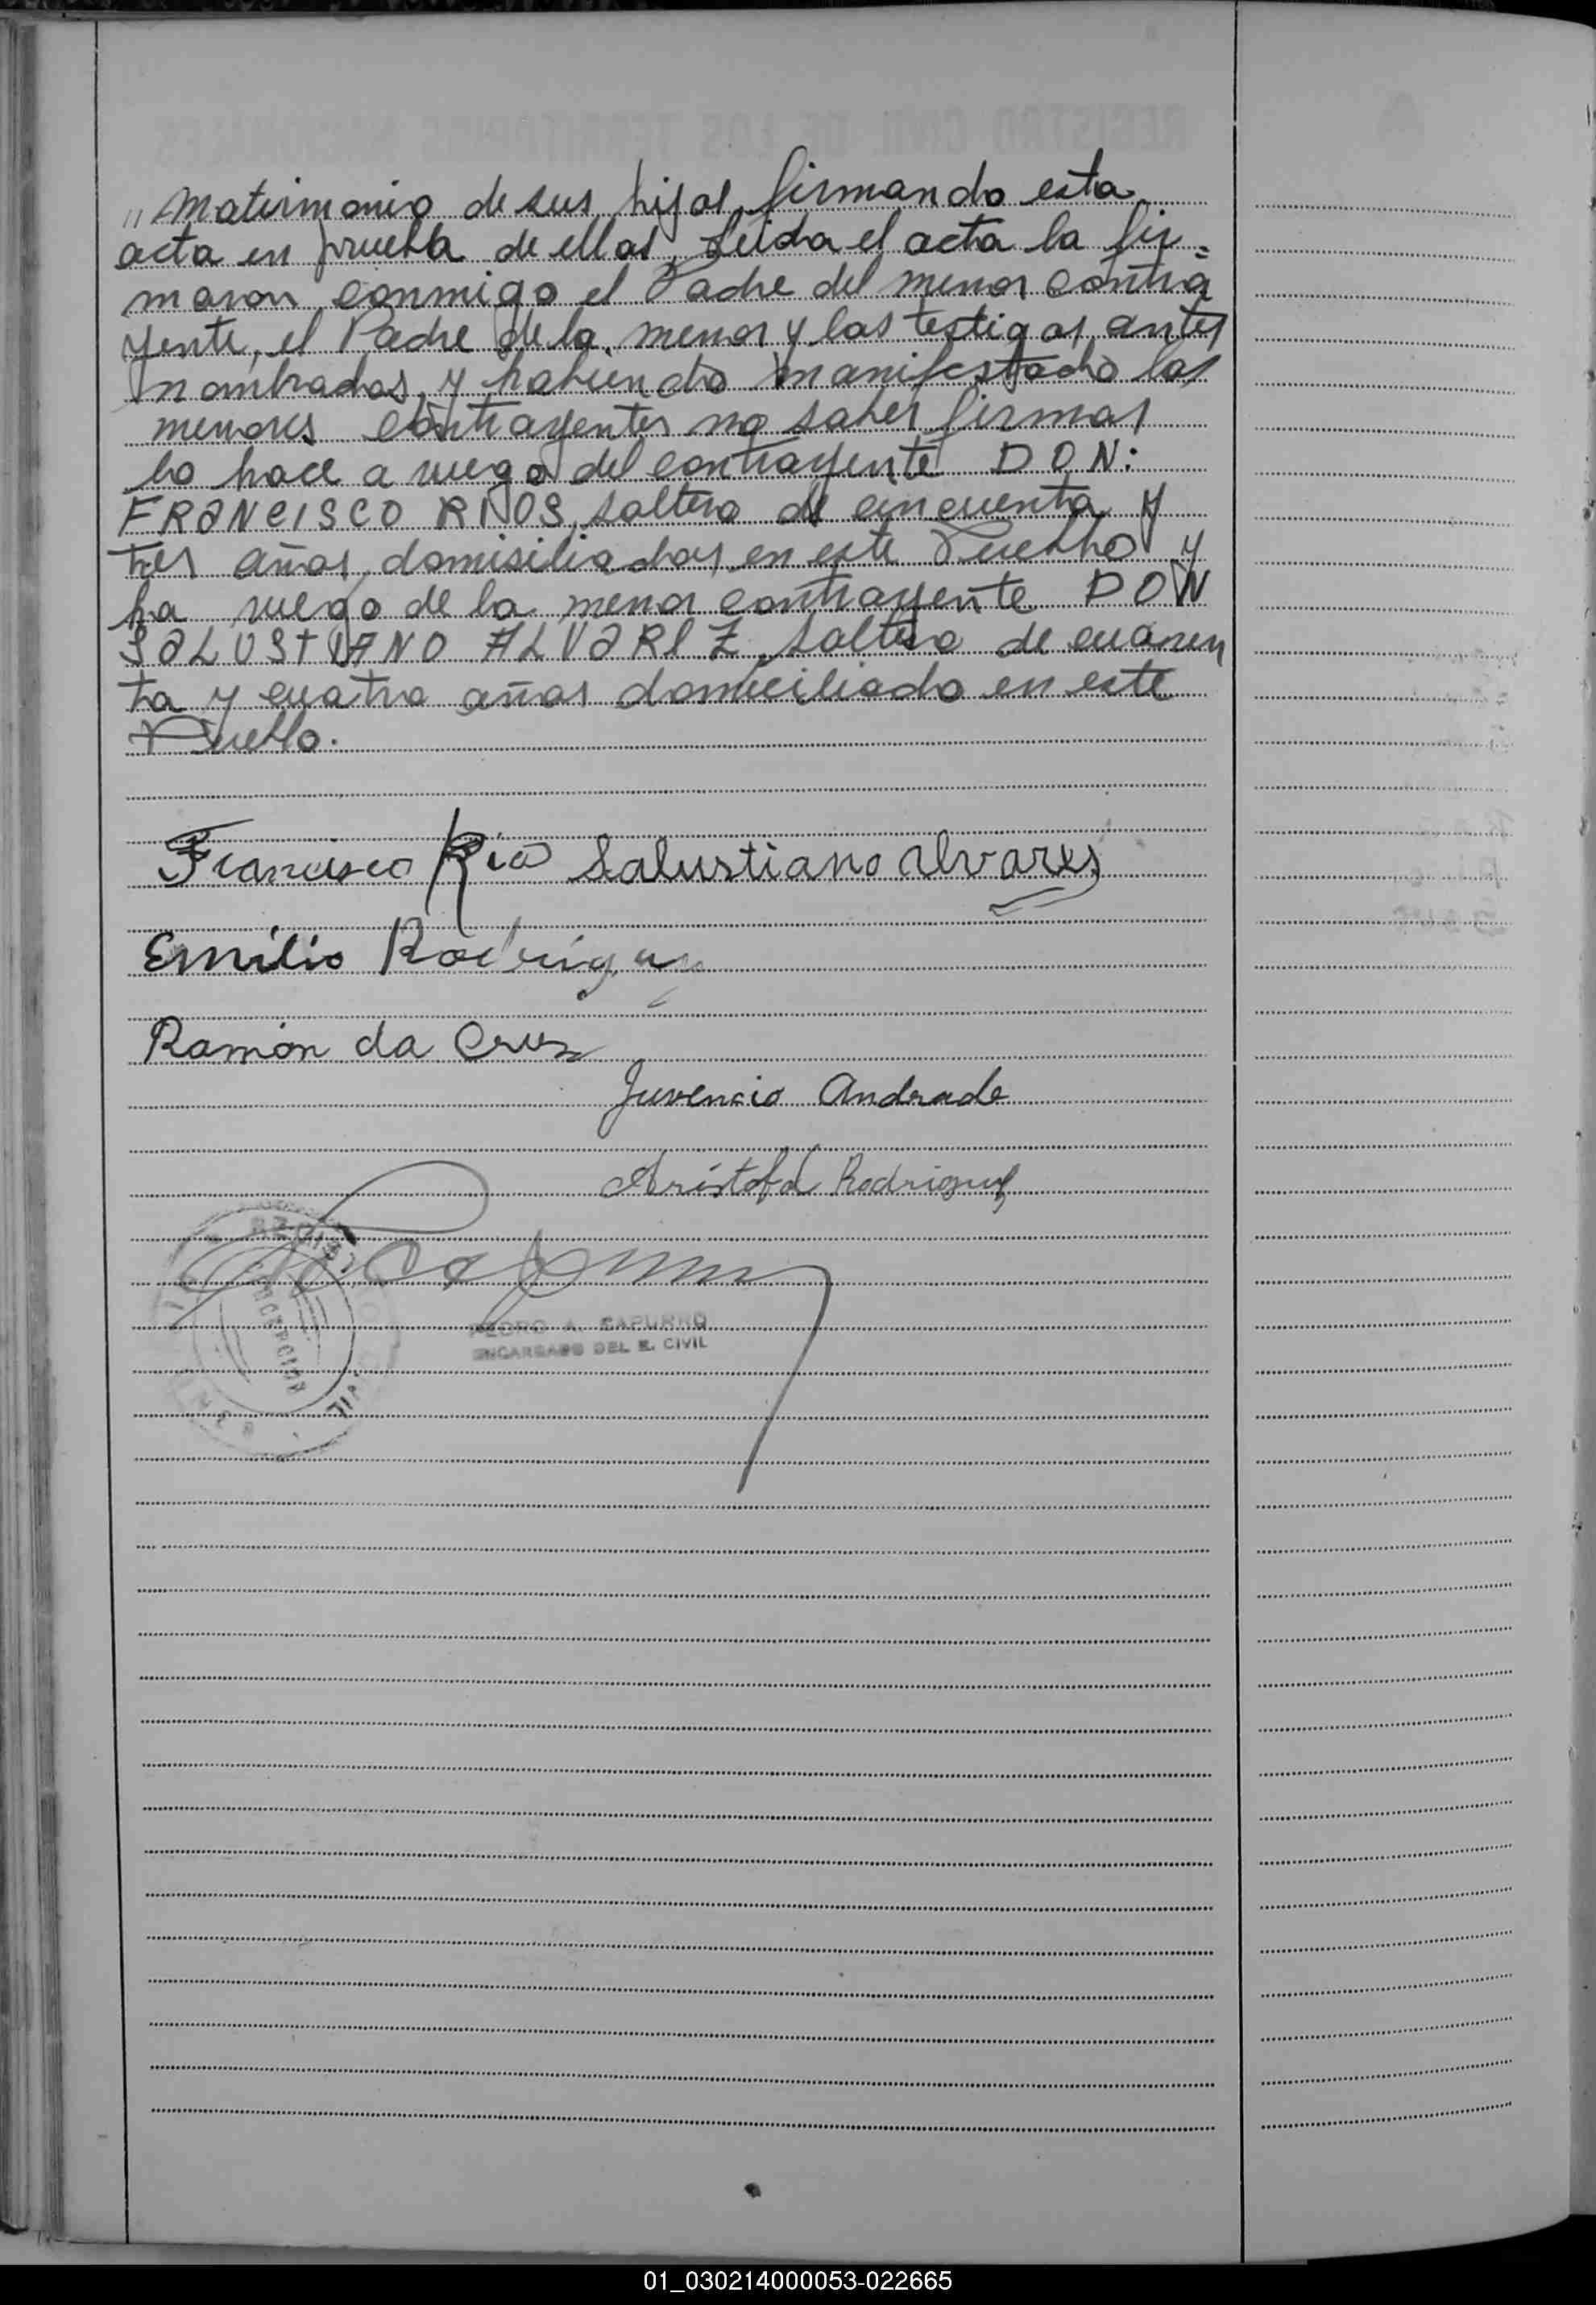 " Matrimonio de sus hijos, firmando esta
acta en prueba de ellos, Leida el acta la fir=
maron conmigo el Padre del menor contra
yente, el Padre de la menor y los testigos antes
nombrados, y habiendo manifestado los
menores contrayentes no saber firmar
lo hace a ruego del contrayente DON:
FRANCISCO RIOS, soltero de cincuenta y
tres años, domisiliados en este Pueblo y
ha ruego de la menor contrayente DON
SALUSTIANO ALVAREZ, soltero de cuaren
ta y cuatro años domiciliado en este
Pueblo.
Francisco Rio Salustiano Alvares
Emilio Rodriguez
Ramón da Cruz
Juvencio Andrade
Rodriguez
PEDRO A. CAPURRO
ENCARGADO DEL R. CIVIL
01_030214000053-022665